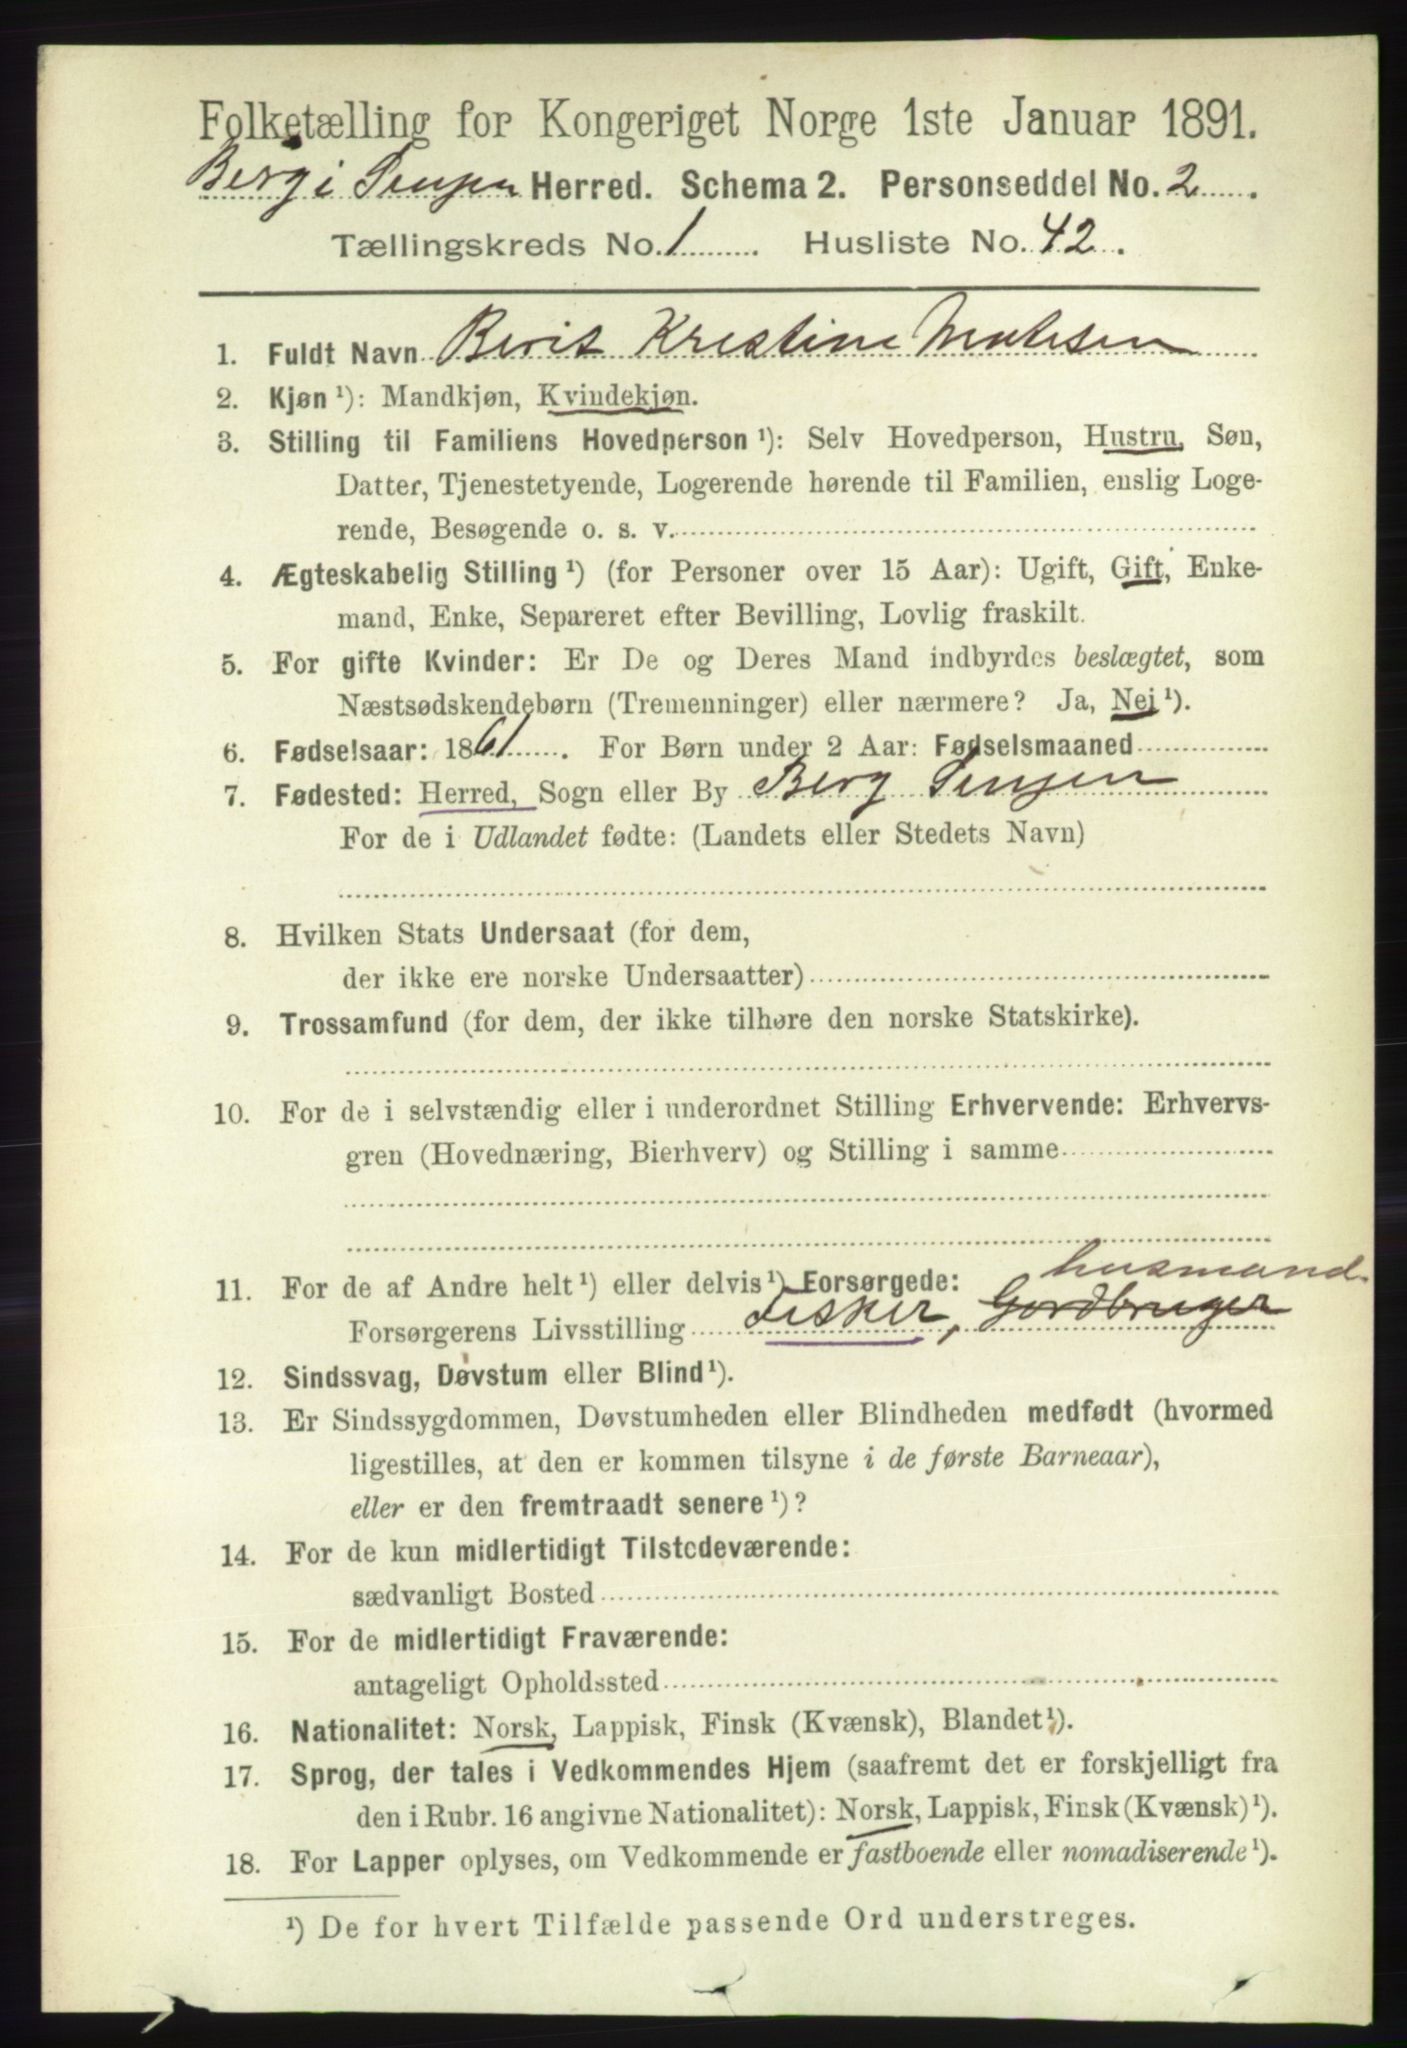 Folketælling for Kongeriget Norge 1ste Januar 1891.
Berg i Senjen Herred. Schema 2. Personseddel No. 2.
Tællingskreds No. 1. Husliste No. 42.
1. Fuldt Navn Berit Kristine
2. Kjøn ¹): Mandkjøn, Kvindekjøn.
3. Stilling til Familiens Hovedperson ¹): Selv Hovedperson, Hustru, Søn,
Datter, Tjenestetyende, Logerende hørende til Familien, enslig Loge-
rende, Besøgende o. s. v.
4. Ægteskabelig Stilling ¹) (for Personer over 15 Aar): Ugift, Gift, Enke-
mand, Enke, Separeret efter Bevilling, Lovlig fraskilt.
5. For gifte Kvinder: Er De og Deres Mand indbyrdes beslægtet, som
Næstsødskendebørn (Tremenninger) eller nærmere? Ja, Nei ¹).
6. Fødselsaar: 1861. For Børn under 2 Aar: Fødselsmaaned
7. Fødested: Herred, Sogn eller By Berg Senjen
For de i Udlandet fødte: (Landets eller Stedets Navn)
8. Hvilken Stats Undersaat (for dem,
der ikke ere norske Undersaatter)
9. Trossamfund (for dem, der ikke tilhøre den norske Statskirke).
10. For de i selvstændig eller i underordnet Stilling Erhvervende: Erhvervs-
gren (Hovednæring, Bierhverv) og Stilling i samme
11. For de af Andre helt ¹) eller delvis ¹) Forsørgede: husmand.
Forsørgerens Livsstilling Fisker, Gordbruger
12. Sindssvag, Døvstum eller Blind ¹).
13. Er Sindssygdommen, Døvstumheden eller Blindheden medfødt (hvormed
ligestilles, at den er kommen tilsyne i de første Barneaar),
eller er den fremtraadt senere ¹)?
14. For de kun midlertidigt Tilstedeværende:
sædvanligt Bosted
15. For de midlertidigt Fraværende:
antageligt Opholdssted
16. Nationalitet: Norsk, Lappisk, Finsk (Kvænsk), Blandet ¹).
17. Sprog, der tales i Vedkommendes Hjem (saafremt det er forskjelligt fra
den i Rubr. 16 angivne Nationalitet): Norsk, Lappisk, Finsk (Kvænsk) ¹).
18. For Lapper oplyses, om Vedkommende er fastboende eller nomadiserende ¹).
¹) De for hvert Tilfælde passende Ord understreges.